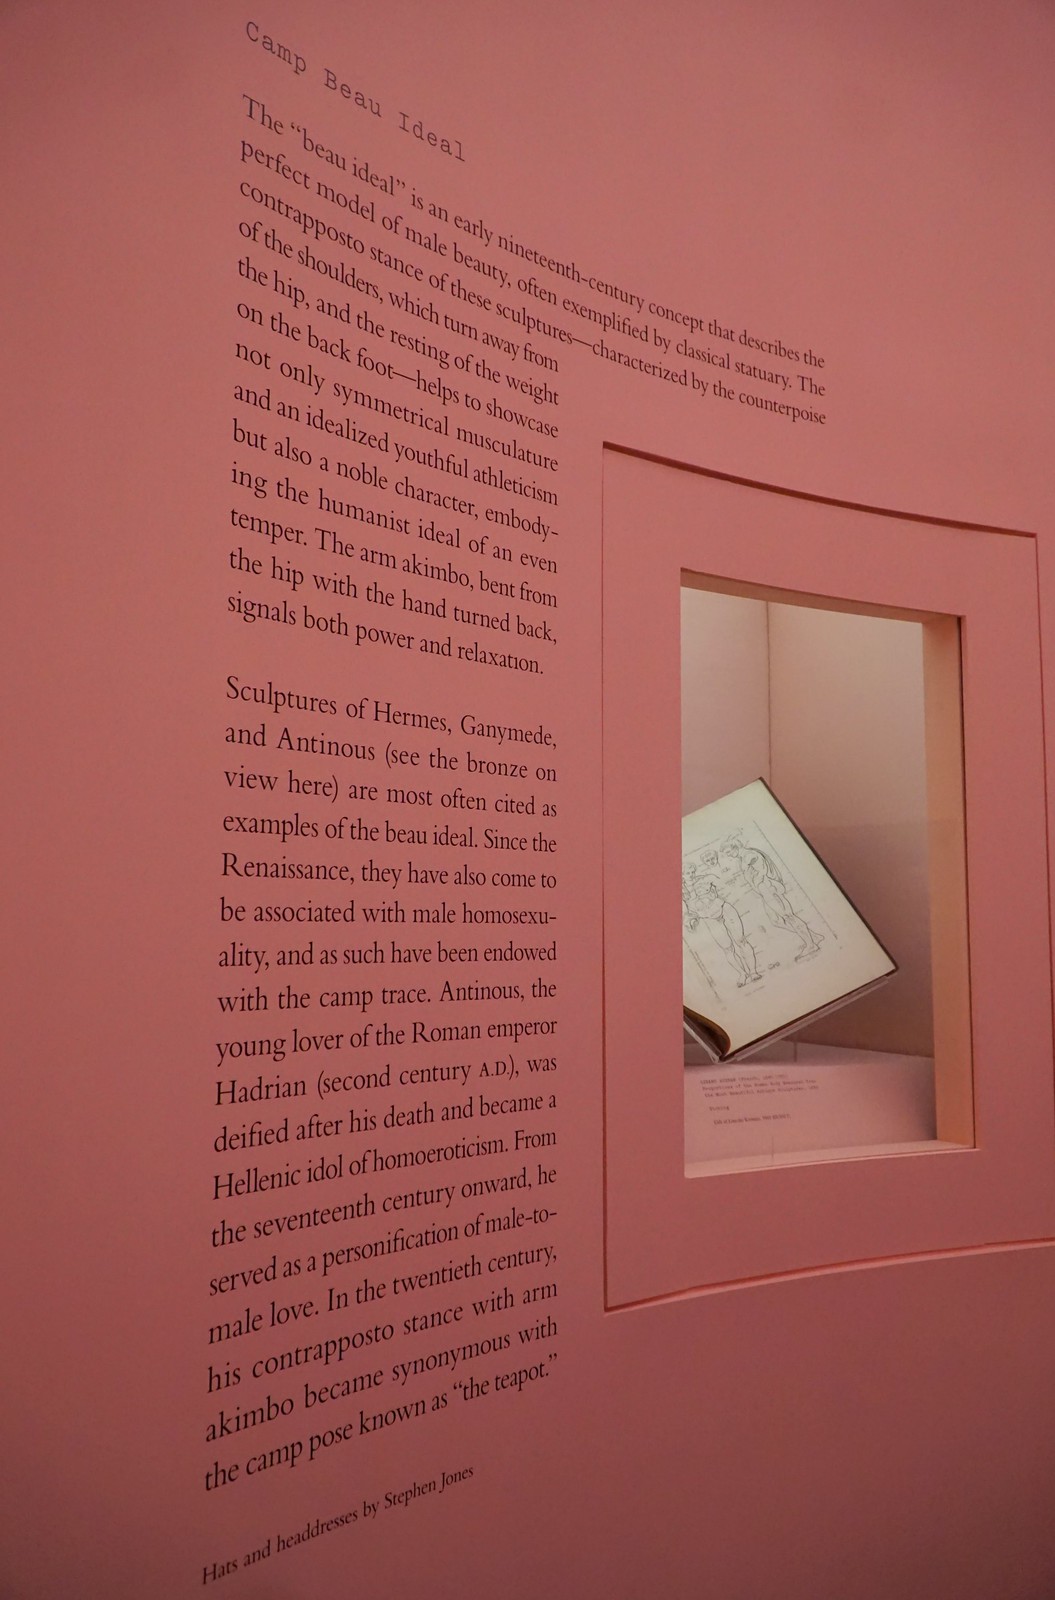 Camp Beau Ideal
The “beau ideal” is an early nineteenth-century concept that describes the
perfect model of male beauty, often exemplified by classical statuary. The
contrapposto stance of these sculptures—characterized by the counterpoise
of the shoulders, which turn away from
the hip, and the resting of the weight
on the back foot—helps to showcase
not only symmetrical musculature
and an idealized youthful athleticism
but also a noble character, embody-
ing the humanist ideal of an even
temper. The arm akimbo, bent from
the hip with the hand turned back,
signals both power and relaxation.
Sculptures of Hermes, Ganymede,
and Antinous (see the bronze on
view here) are most often cited as
examples of the beau ideal. Since the
Renaissance, they have also come to
be associated with male homosexu-
ality, and as such have been endowed
with the camp trace. Antinous, the
young lover of the Roman emperor
Hadrian (second century A.D.), was
deified after his death and became a
Hellenic idol of homoeroticism. From
the seventeenth century onward, he
served as a personification of male-to-
male love. In the twentieth century,
his contrapposto stance with arm
akimbo became synonymous with
the camp pose known as “the teapot.”
Hats and headdresses by Stephen Jones